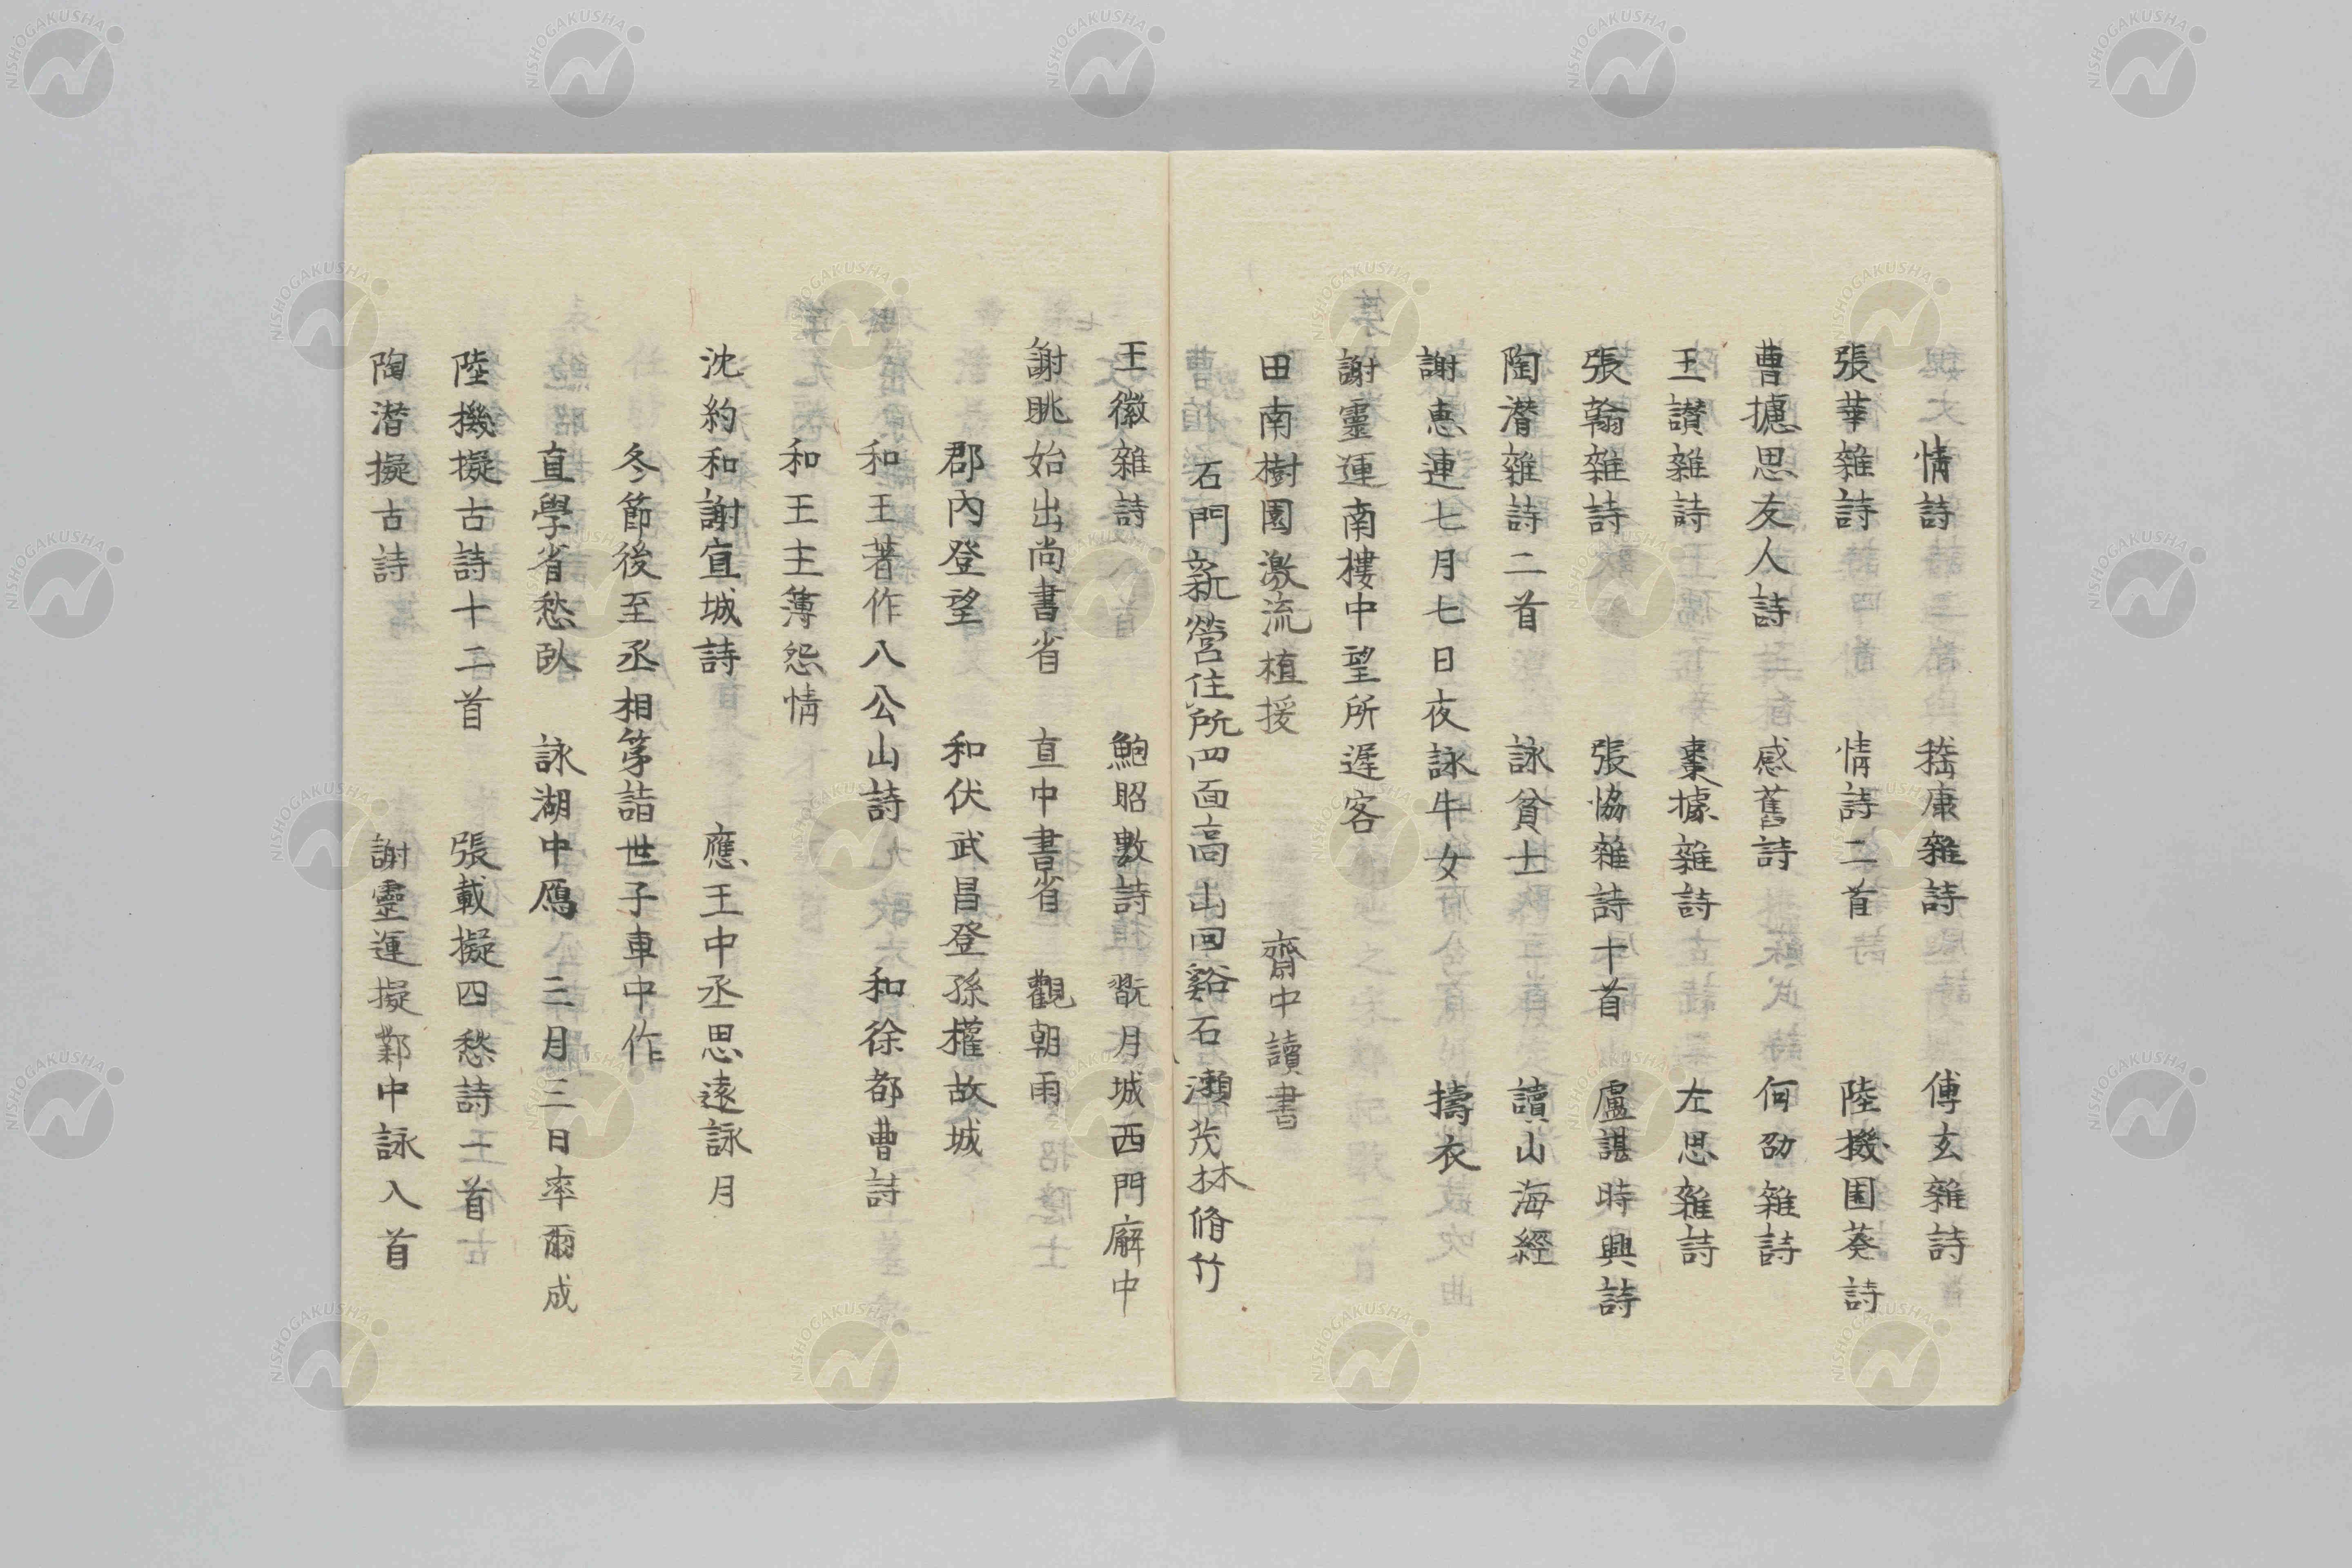 情詩　嵆康雜詩　傅玄雜詩
張華雜詩　情詩二首　陸機園葵詩
曹攄思友人詩　感舊詩　何劭雜詩
王讃雜詩　棗據雜詩　左思雜詩
張翰雜詩　張恊雜詩十首　盧諶時興詩
陶潛雜詩二首　詠貧士　讀山海經
謝惠連七月七日夜詠牛女　擣衣
謝靈運南樓中望所遲客
田南樹園激流植援　齋中讀書
石門新營住所四面高山回谿石瀨茂林脩竹
王徽雜詩　鮑昭數詩　翫月城西門廨中
謝眺始出尚書省　直中書省　觀朝雨
郡內登望　和伏武昌登孫權故城
和王著作八公山詩　和徐都曹詩
和王主簿怨情
沈約和謝宣城詩　應王中丞思遠詠月
冬節後至丞相第詣世子車中作
直學省愁臥　詠湖中鴈　三月三日率爾成
陸機擬古詩十二首　張載擬四愁詩一首
陶潛擬古詩　謝靈運擬鄴中詠八首
NISHOGAKUSHA